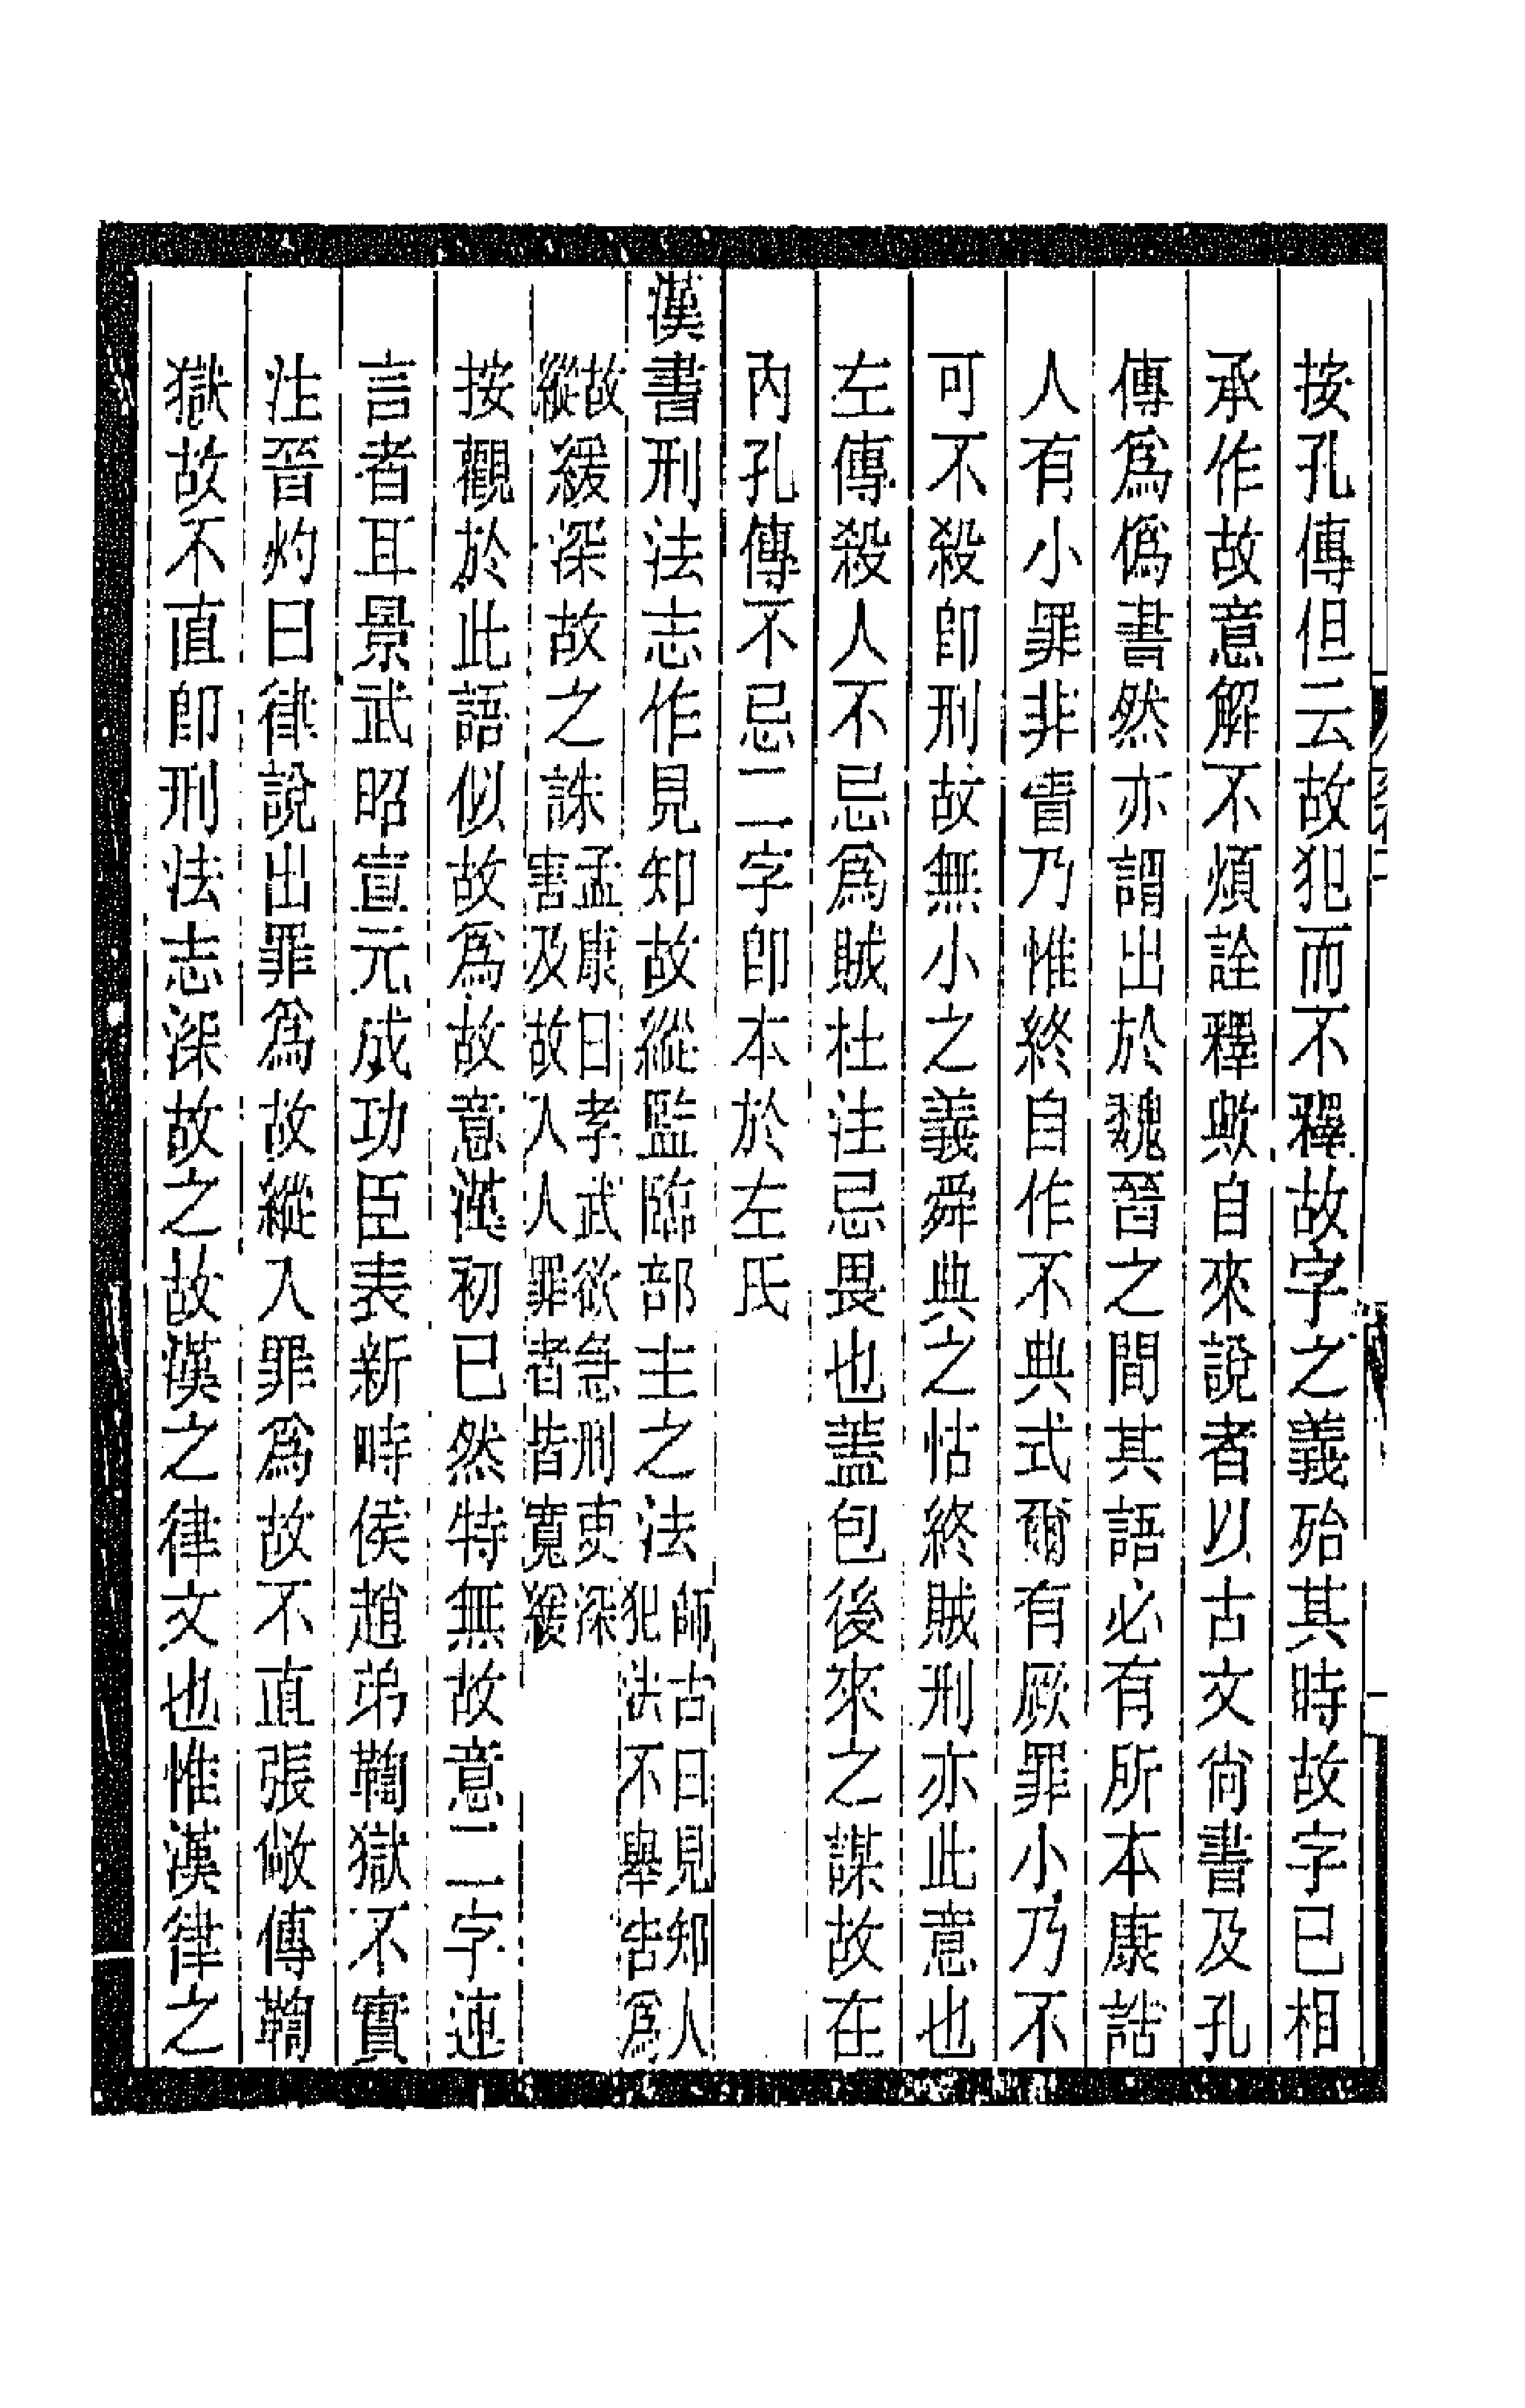 按孔傳但云故犯而不釋故字之義殆其時故字已相
承作故意解不煩詮釋歟自來說者以古文尚書及孔
傳爲僞書然亦謂出於魏晉之間其語必有所本康誥
人有小罪非眚乃惟終自作不典式爾有厥罪小乃不
可不殺卽刑故無小之義舜典之怙終賊刑亦此意也
左傳殺人不忌爲賊杜注忌畏也蓋包後來之謀故在
內孔傳不忌二字卽本於左氏
漢書刑法志作見知故縱監臨部主之法
師古曰見知人
犯法不舉告爲
故
縱
緩深故之誅
孟康曰孝武欲急刑吏深
害及故入人罪者皆寬緩
按觀於此語似故爲故意漢初已然特無故意二字連
言者耳景武昭宣元成功臣表新畤侯趙弟鞫獄不實
注晉灼曰律說出罪爲故縱入罪爲故不直張敞傳鞫
獄故不直卽刑法志深故之故漢之律文也惟漢律之